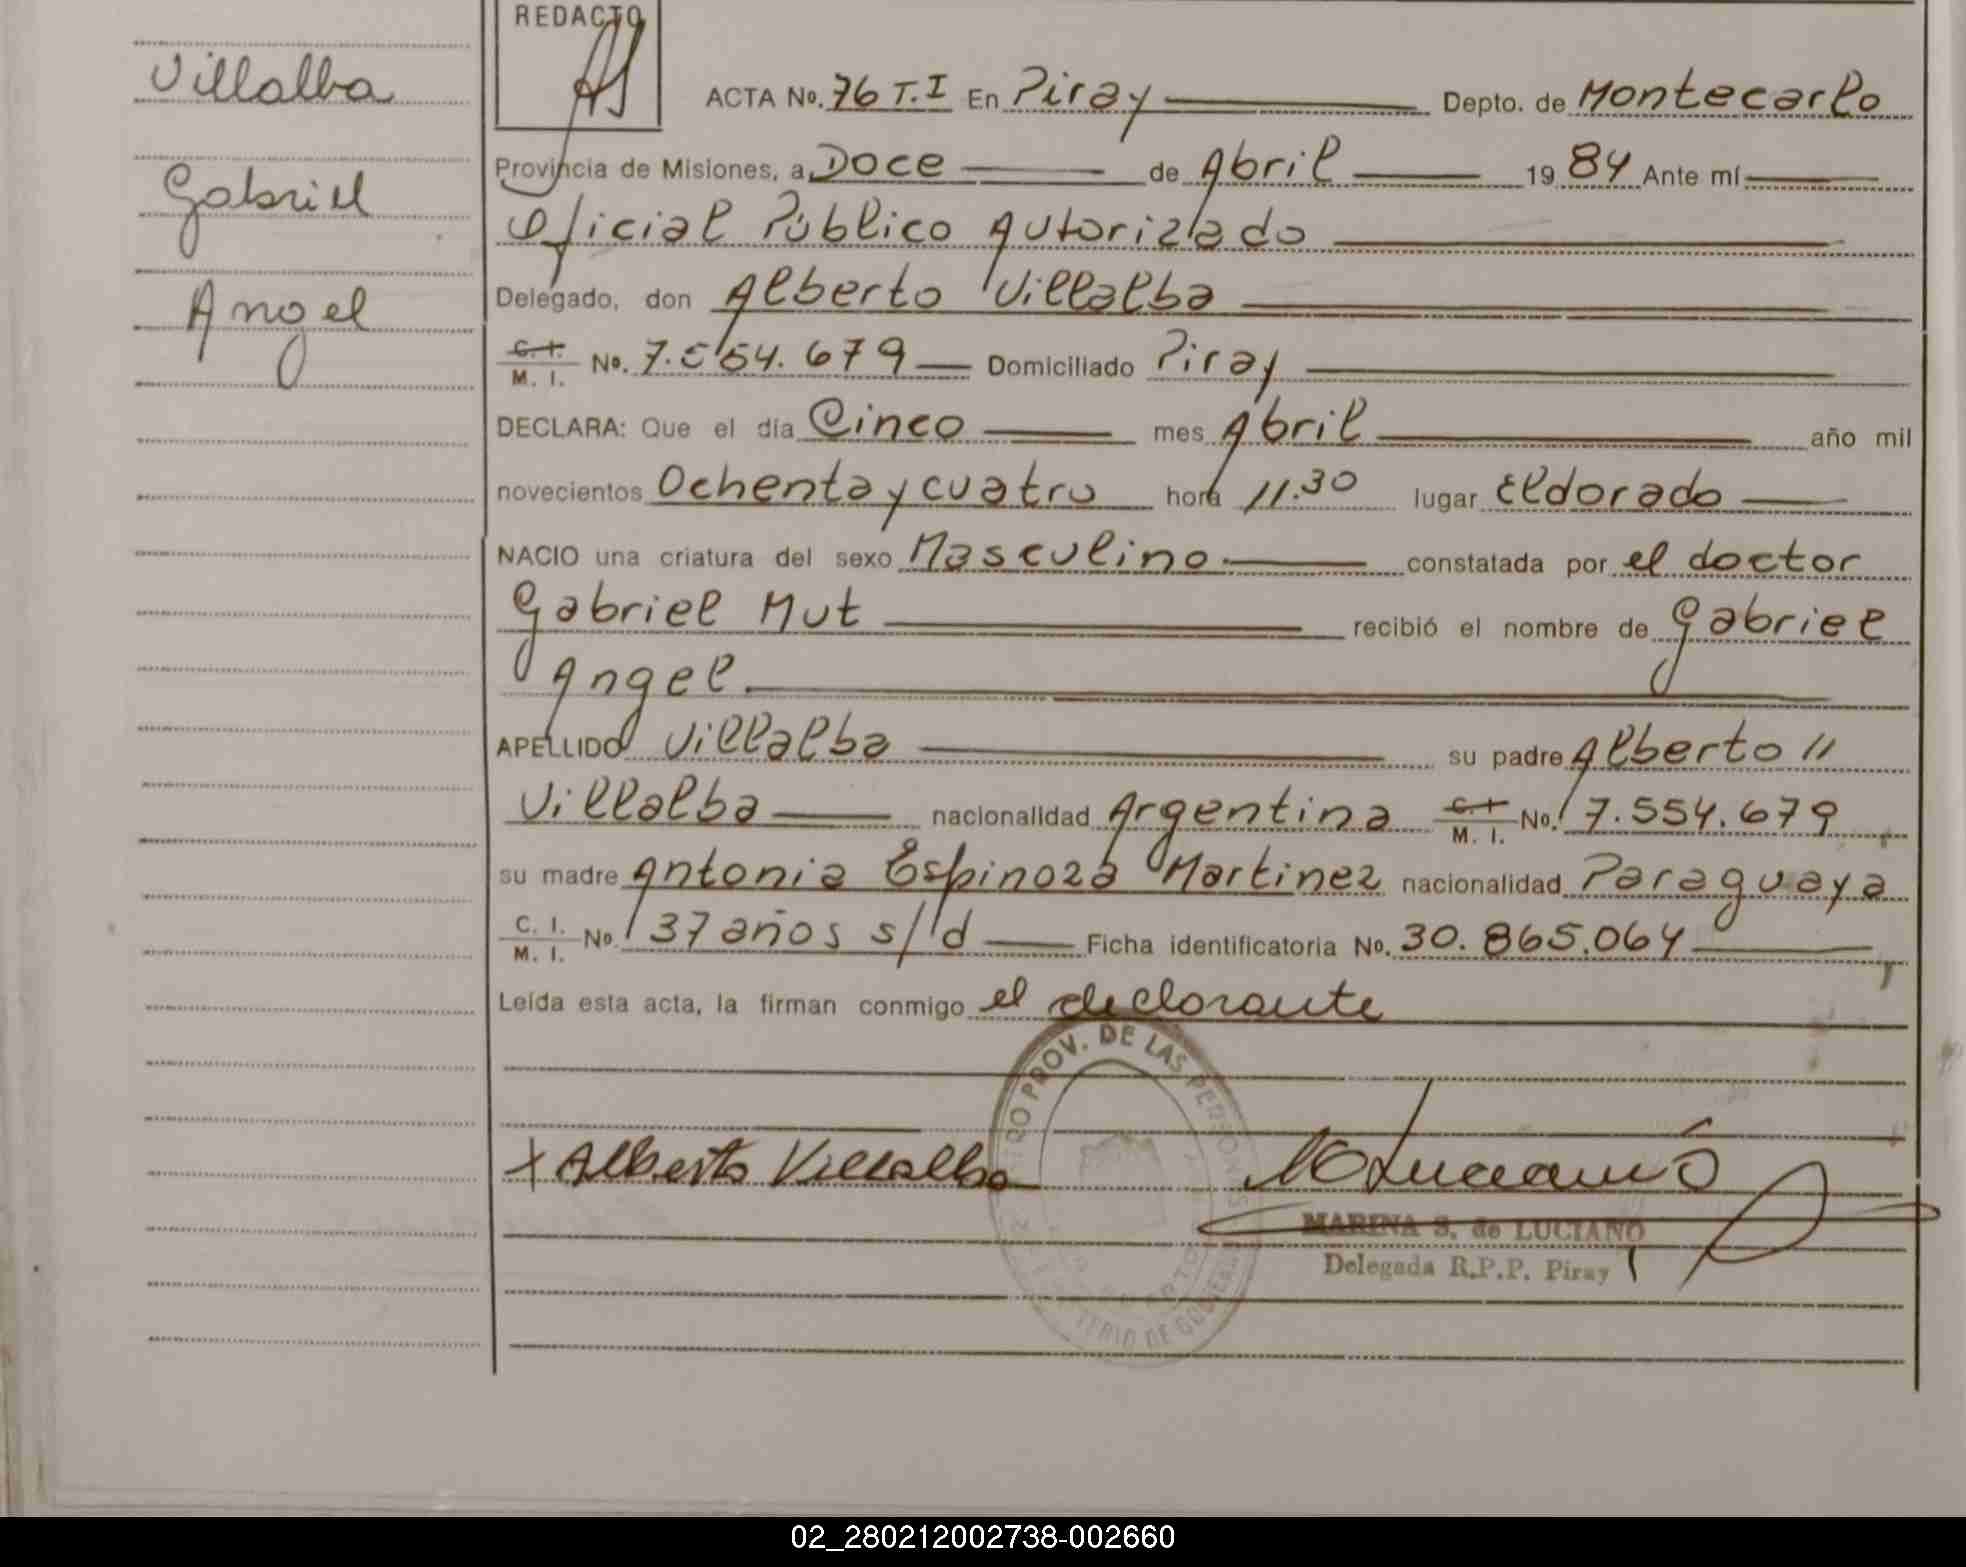 Villalba
Gabriel
Angel
REDACTO
ACTA No. 76 T.I En Piray Depto. de Montecarlo
Provincia de Misiones, a Doce de Abril 19 84 Ante mí
Oficial Público Autorizado
Delegado, don Alberto Villalba
C. I. M. I. No. 7.554.679 Domiciliado Piray
DECLARA: Que el día Cinco mes Abril año mil
novecientos Ochenta y cuatro hora 11.30 lugar Eldorado
NACIO una criatura del sexo Masculino constatada por el doctor
Gabriel Mut recibió el nombre de Gabriel
Angel
APELLIDO Villalba su padre Alberto //
Villalba nacionalidad Argentina C. I. M. I. No. 7.554.679
su madre Antonia Espinoza Martinez nacionalidad Paraguaya
C. I. M. I. No 37 años s/d Ficha identificatoria No. 30.865.064
Leída esta acta, la firman conmigo el declarante
PROV. DE LAS PERSONAS
+ Alberto Villalba
MARINA S. de LUCIANO
Delegada R.P.P. Piray
02_280212002738-002660